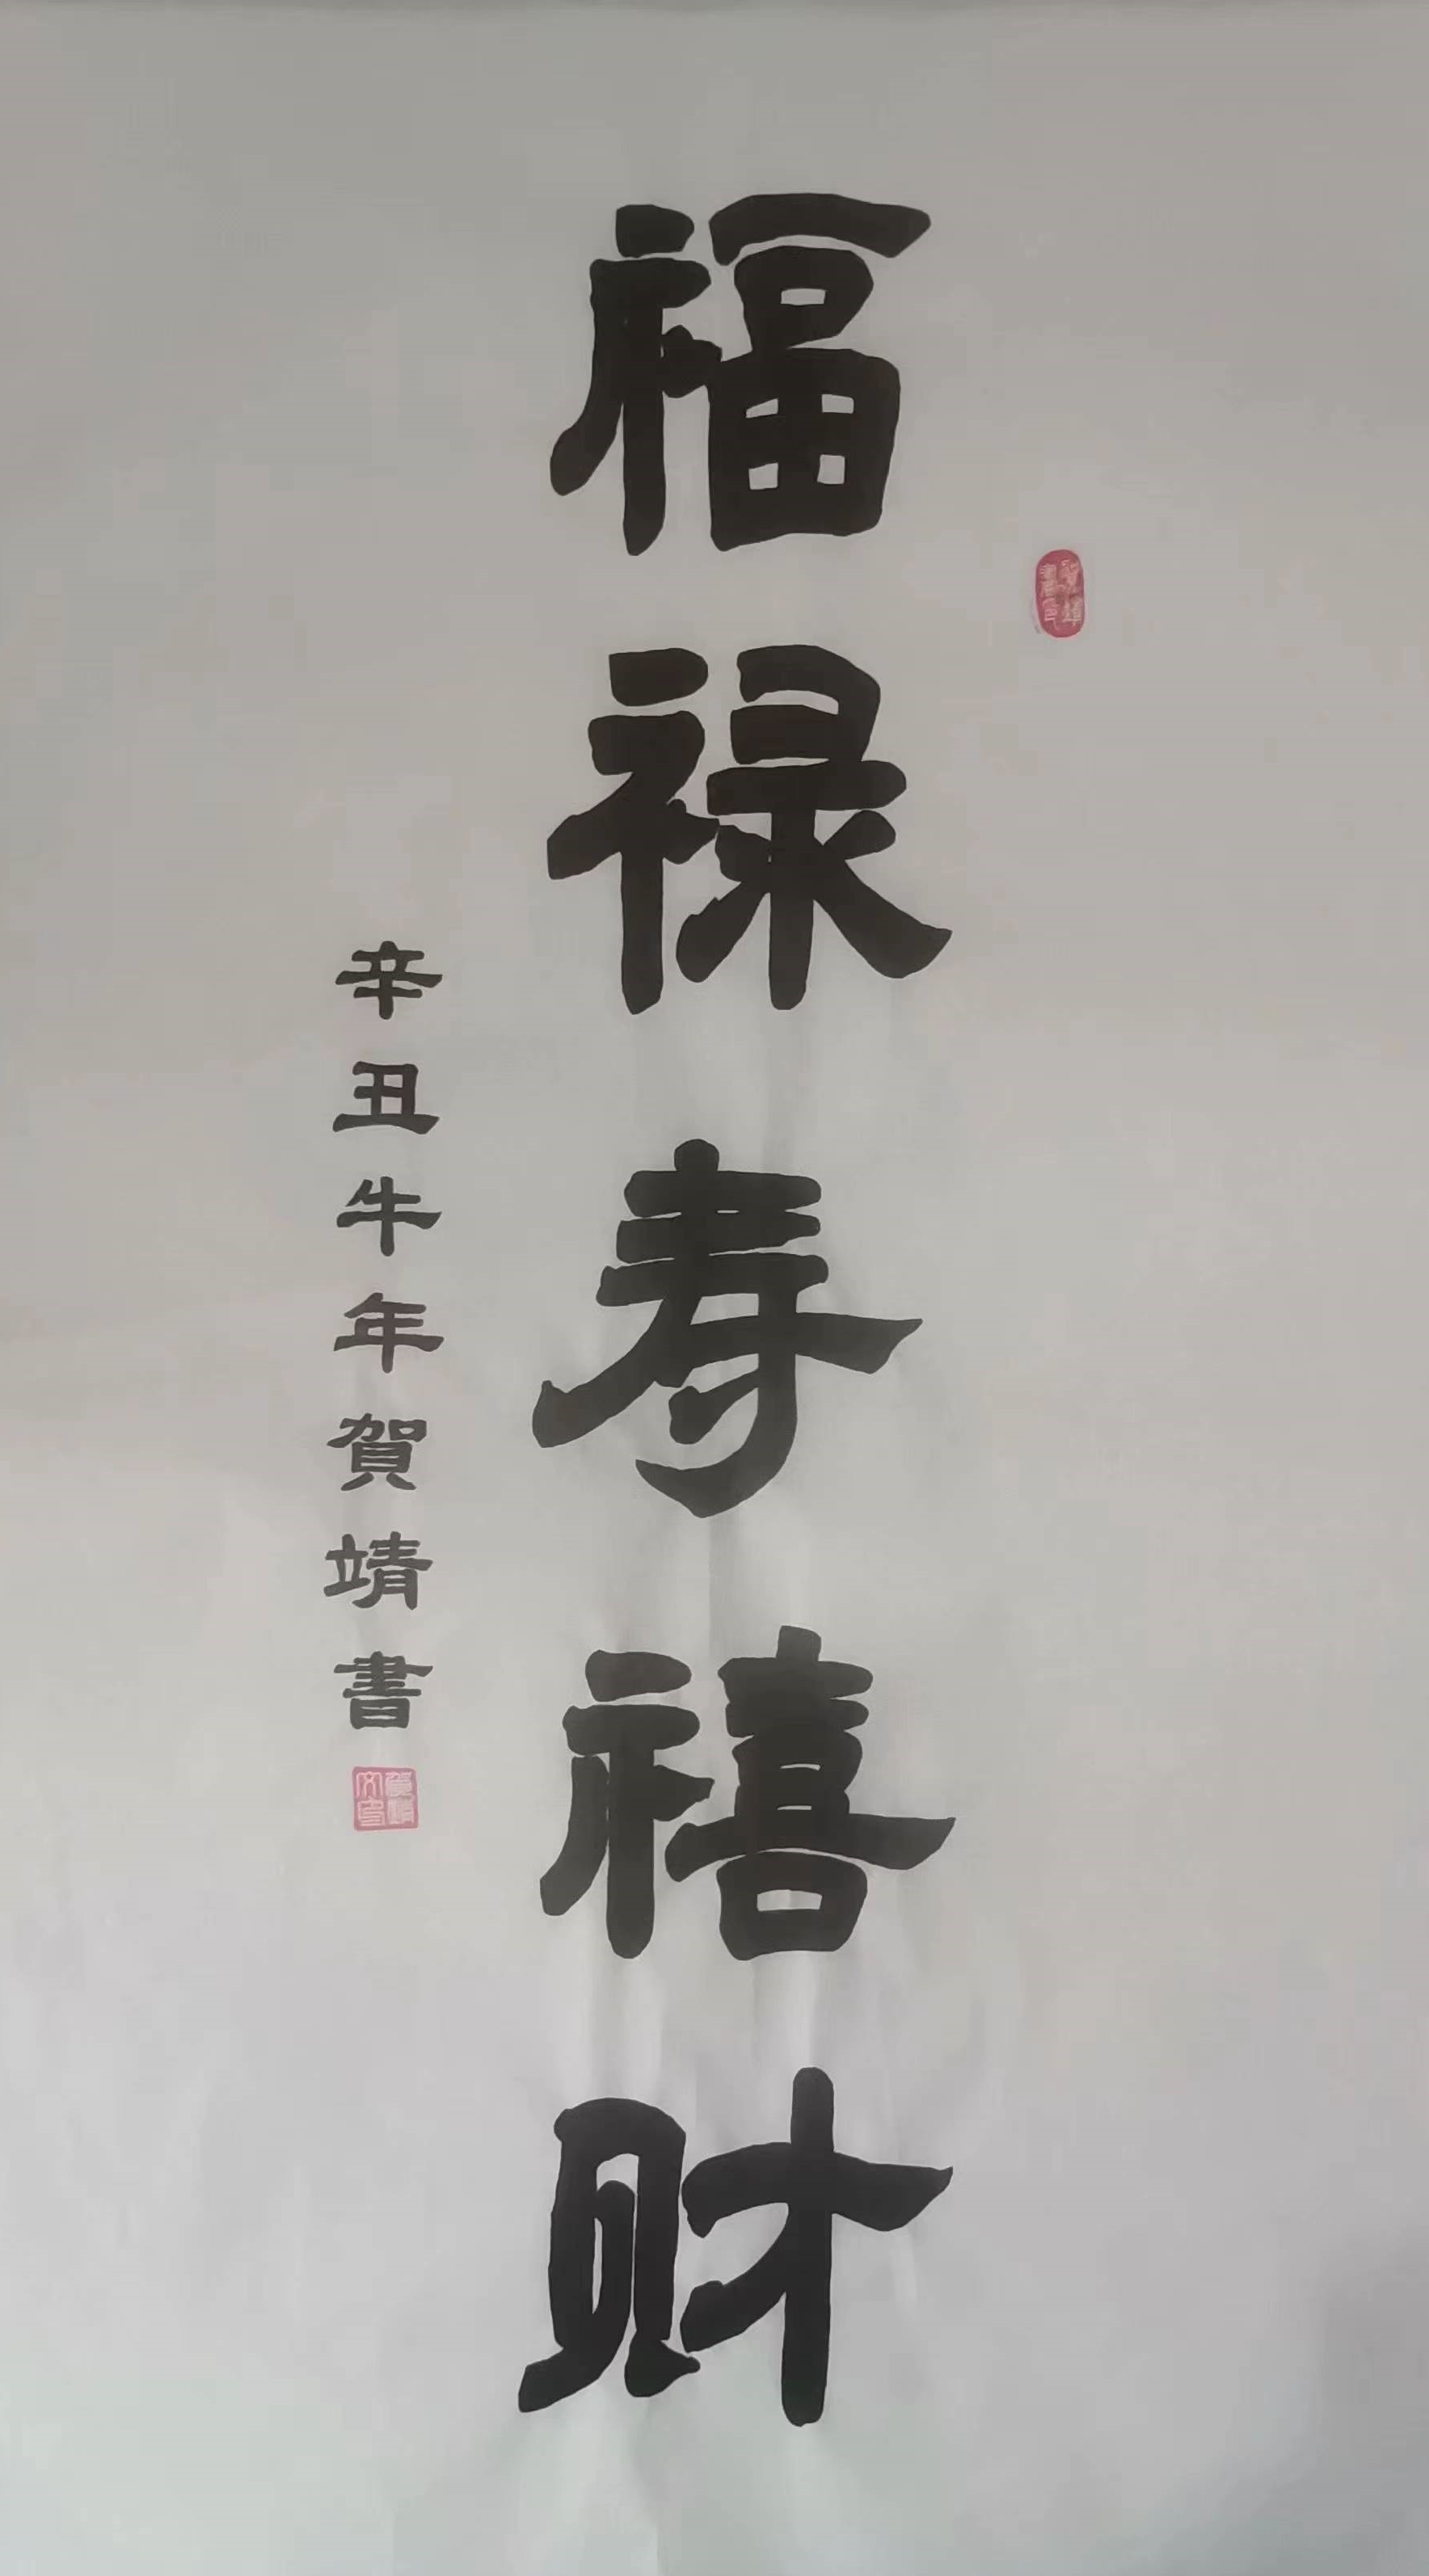 福禄寿禧财
辛丑牛年賀靖書